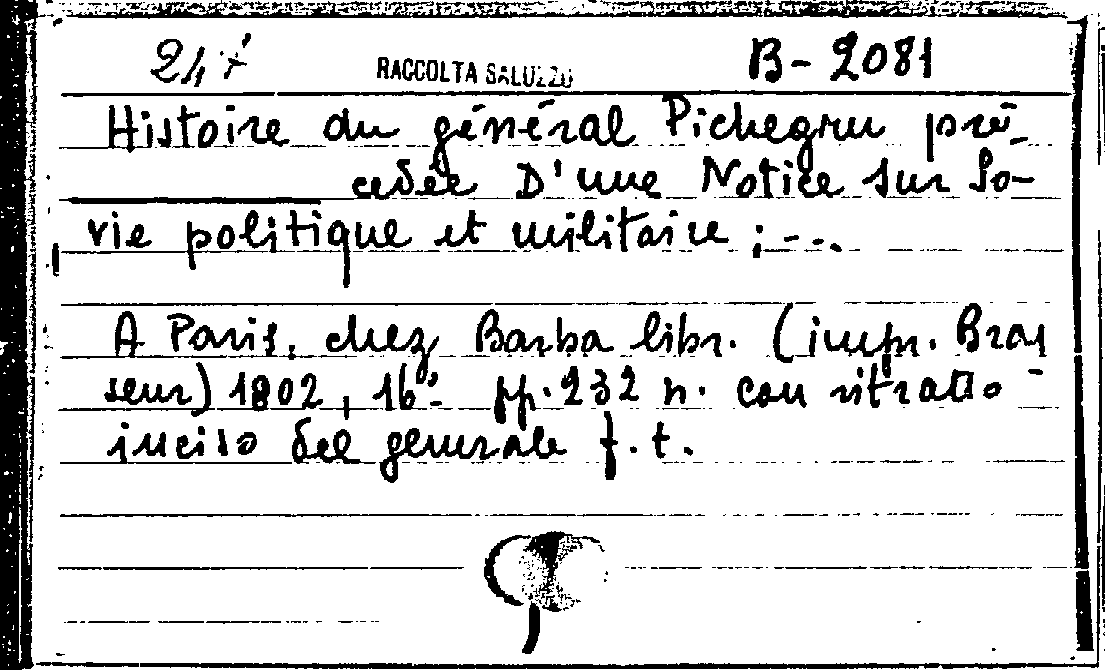 247 RACCOLTA SALUZZO B-2081
Histoire du général Pichegru pré-
cedée D'une Notice sur sa-
vie politique et militaire ; -..
A Paris, chez Barba libr. (impr. Bras
seur) 1802, 16º- pp. 232 n. con ritratto -
inciso del generale f. t.